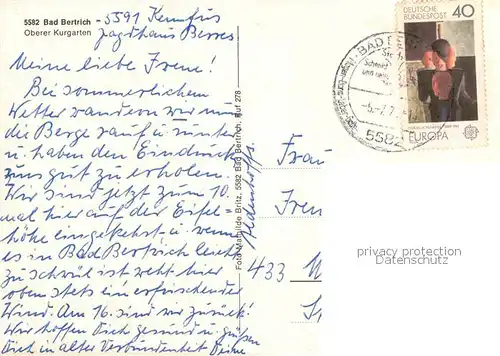 5582 Bad Bertrich - 5591 Kennfus
Oberer Kurgarten
Jagdhaus Berres
Meine liebe Irene!
Bei sommerlichem
Wetter wandern wir nun
die Berge rauf u. runter
u. haben den Eindruck
uns gut zu erholen.
Wir sind jetzt zum 10.
mal hier auf der Eifel-
höhe eingekehrt u. wenn
es in Bad Bertrich leicht
zu schwül ist weht hier
oben stets ein erfrischender
Wind. Am 16. sind wir zurück.
Wir hoffen Dich gesund u. grüßen
Dich in alter Verbundenheit Deine
Foto Mathilde Britz, 5582 Bad Bertrich, Ruf 278
Frau
Iren
433 M
DEUTSCHE
BUNDESPOST
40
EUROPA
BAD
5582
privacy protection
Datenschutz